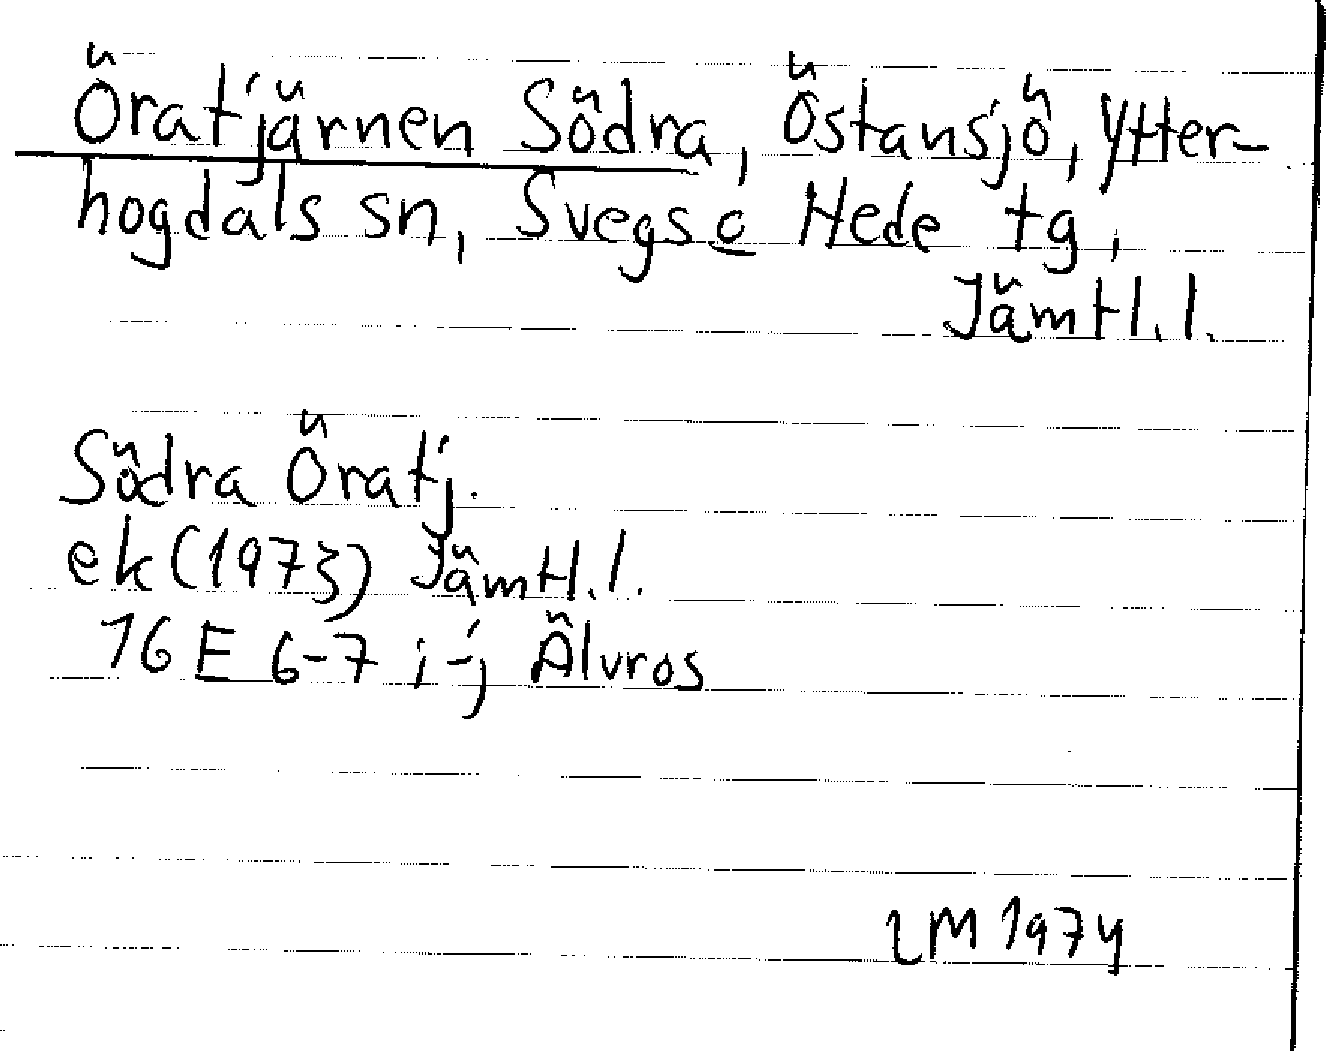 Öratjärnen Södra, Östansjö, Ytter-
hogdals sn, Svegs o Hede tg,
Jämtl. l.
Södra Öratj.
ek (1973) Jämtl. l.
16 E 6-7 i-j Älvros
LM 1974